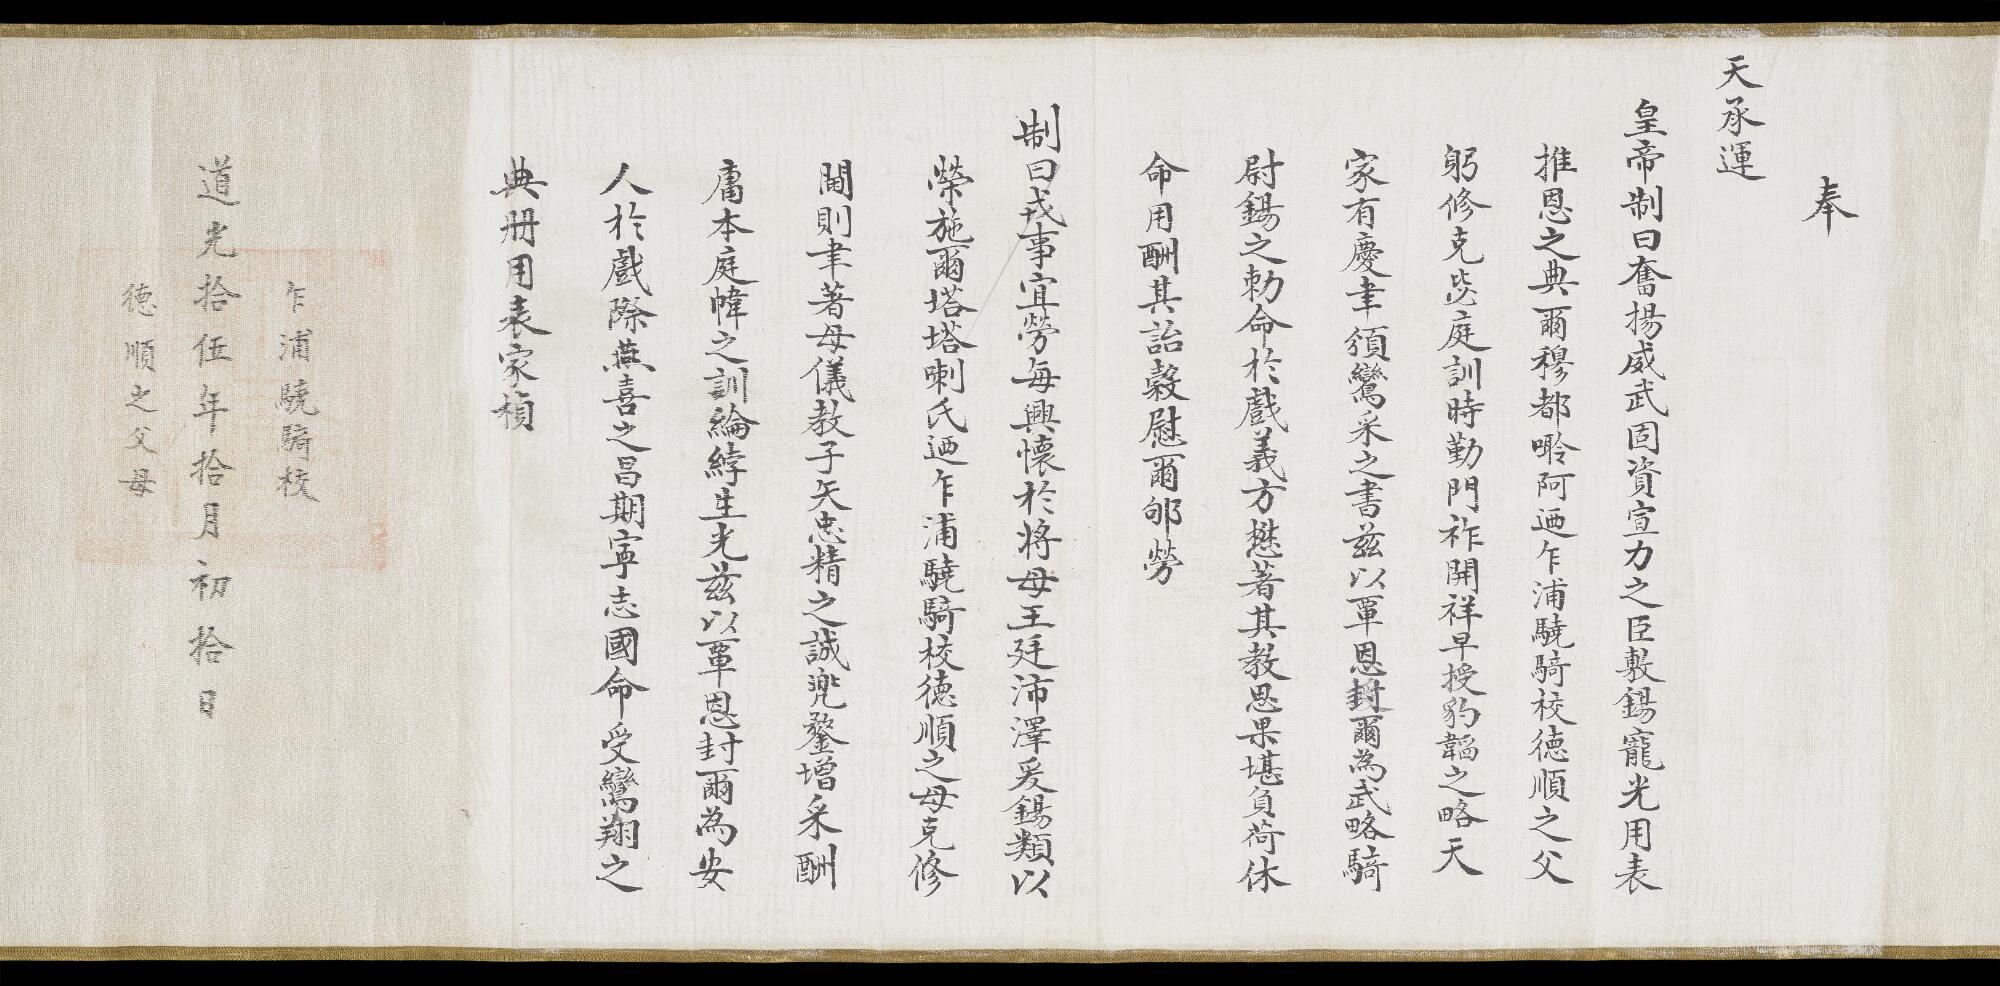 奉
天承運
皇帝制曰奮揚威武固資宣力之臣敷錫寵光用表
推恩之典爾穆都㖫阿迺乍浦驍騎校德順之父
躬修克毖庭訓時勤門祚開祥早授豹韜之略天
家有慶聿頒鸞采之書兹以覃恩封爾為武略騎
尉錫之勅命於戲義方懋著其教思果堪負荷休
命用酬其詒穀慰爾邮勞
制曰戎事宜勞每興懷於將母王廷沛澤爰錫類以
榮施爾塔塔喇氏迺乍浦驍騎校德順之母克修
閫則聿著母儀教子矢忠精之誠兜鍪增采酬
庸本庭幃之訓綸綍生光兹以覃恩封爾為安
人於戲際燕喜之昌期寧志國命受鸞翔之
典册用表家楨
乍浦驍騎校
道光拾伍年拾月初拾日
德順之父母